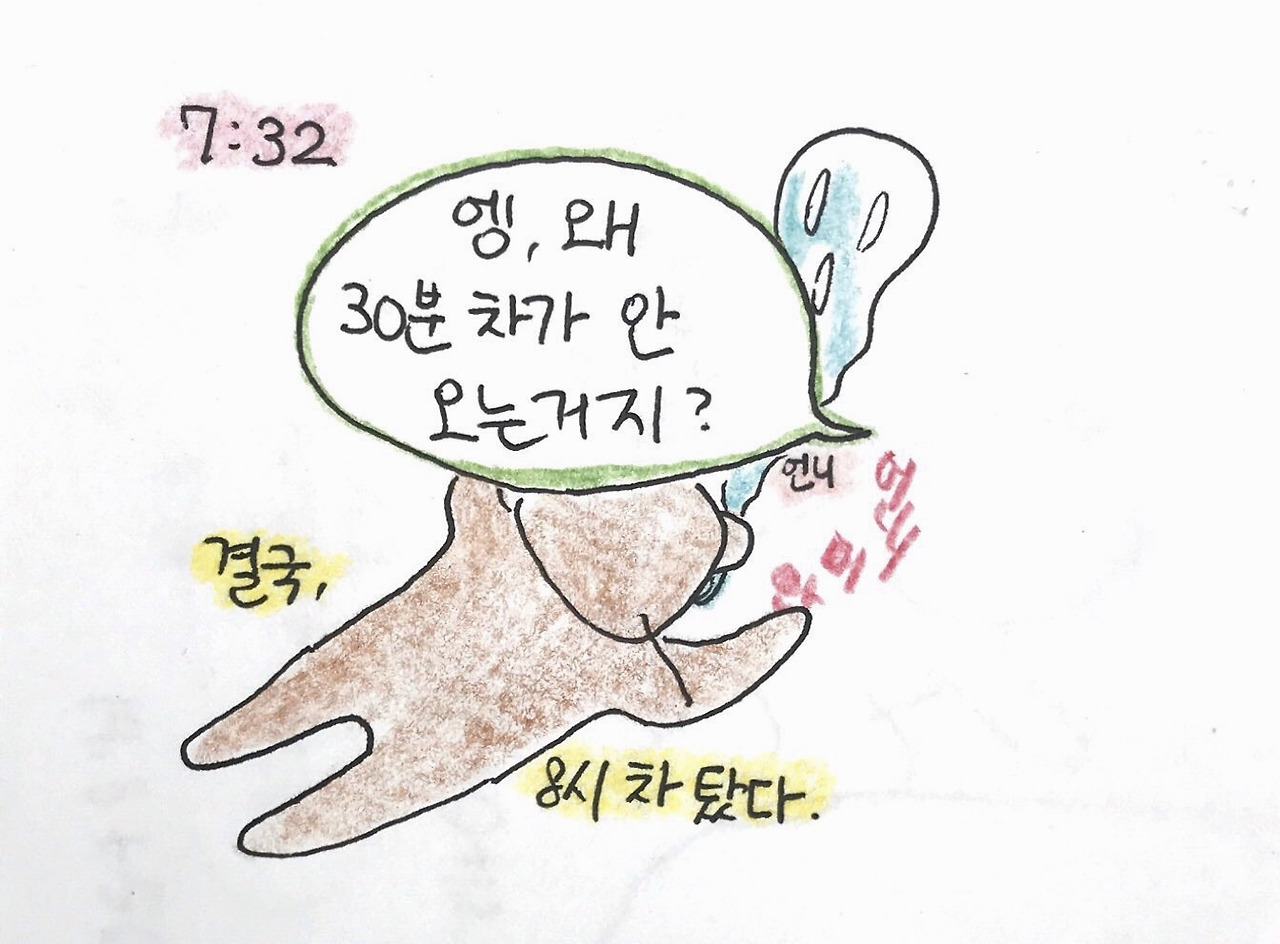 7:32
엥, 왜
30분 차가 안
오는거지?
언니
언니
결국,
8시 차 탔다.